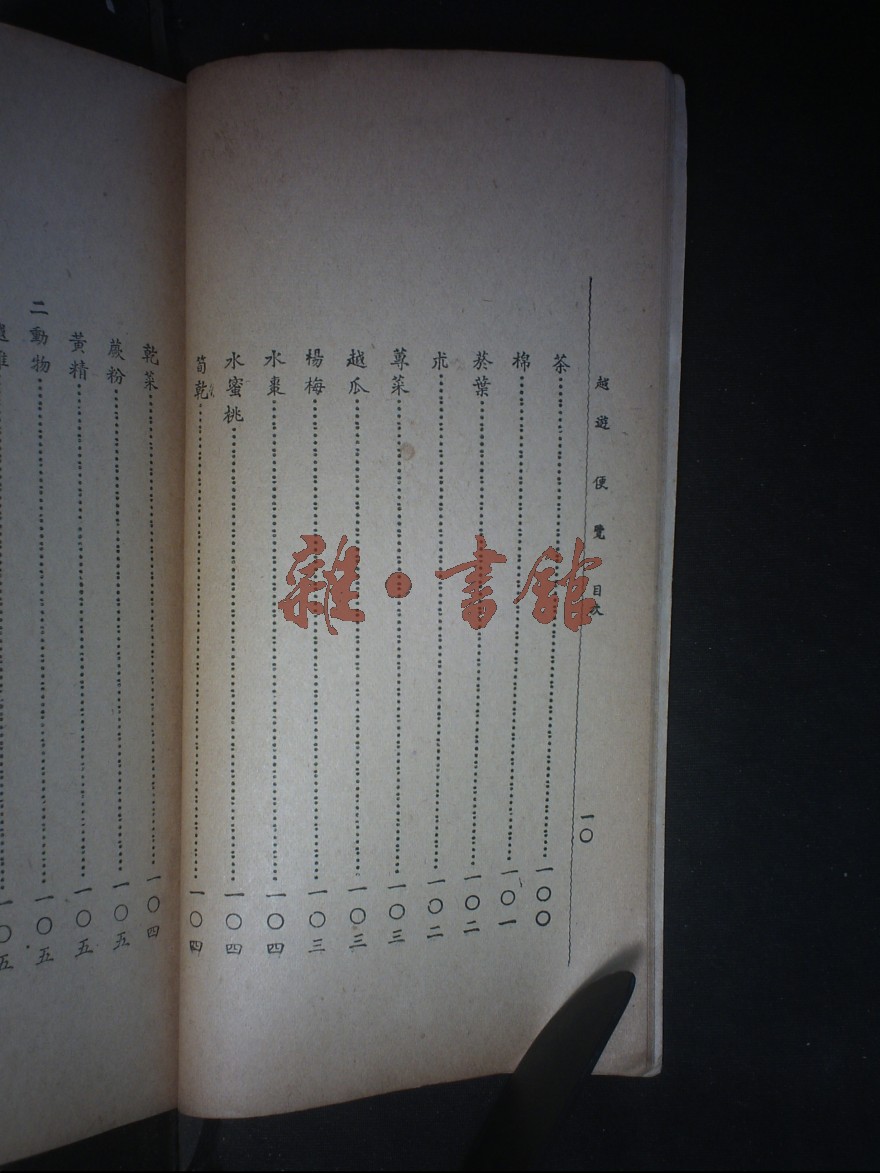 越遊便覽 目次 一〇
茶……一〇〇
棉……一〇一
菸葉……一〇二
朮……一〇二
蓴菜……一〇三
越瓜……一〇三
楊梅……一〇三
水棗……一〇四
水蜜桃……一〇四
筍乾……一〇四
乾菜……一〇四
蕨粉……一〇五
黃精……一〇五
二動物……一〇五
一〇五
雜·書館